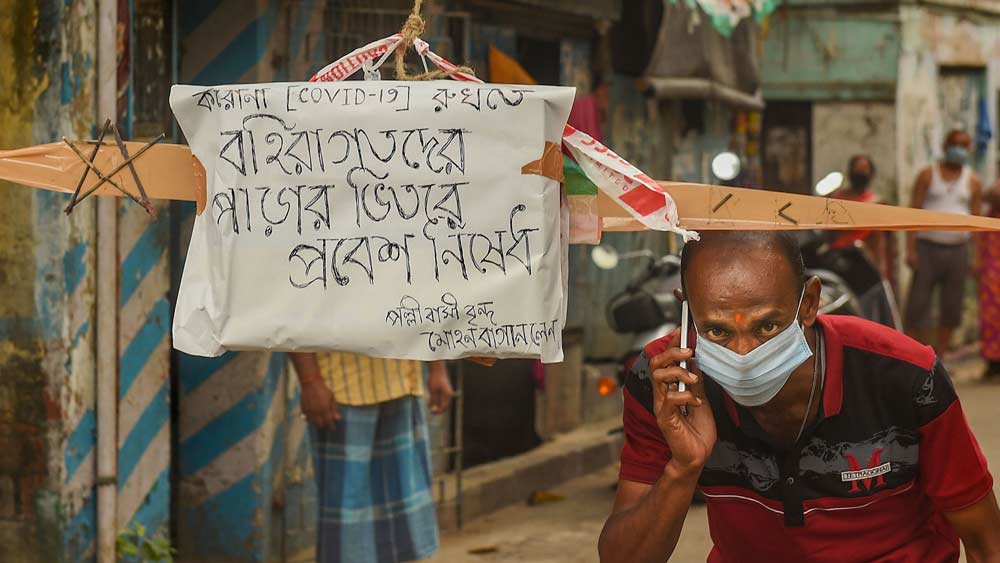 করোনা [COVID-19] রুখতে
বহিরাগতদের
পাড়ার ভিতরে
প্রবেশ নিষেধ
পল্লী বাসী বৃন্দ
মোহনবাগান লেন
M